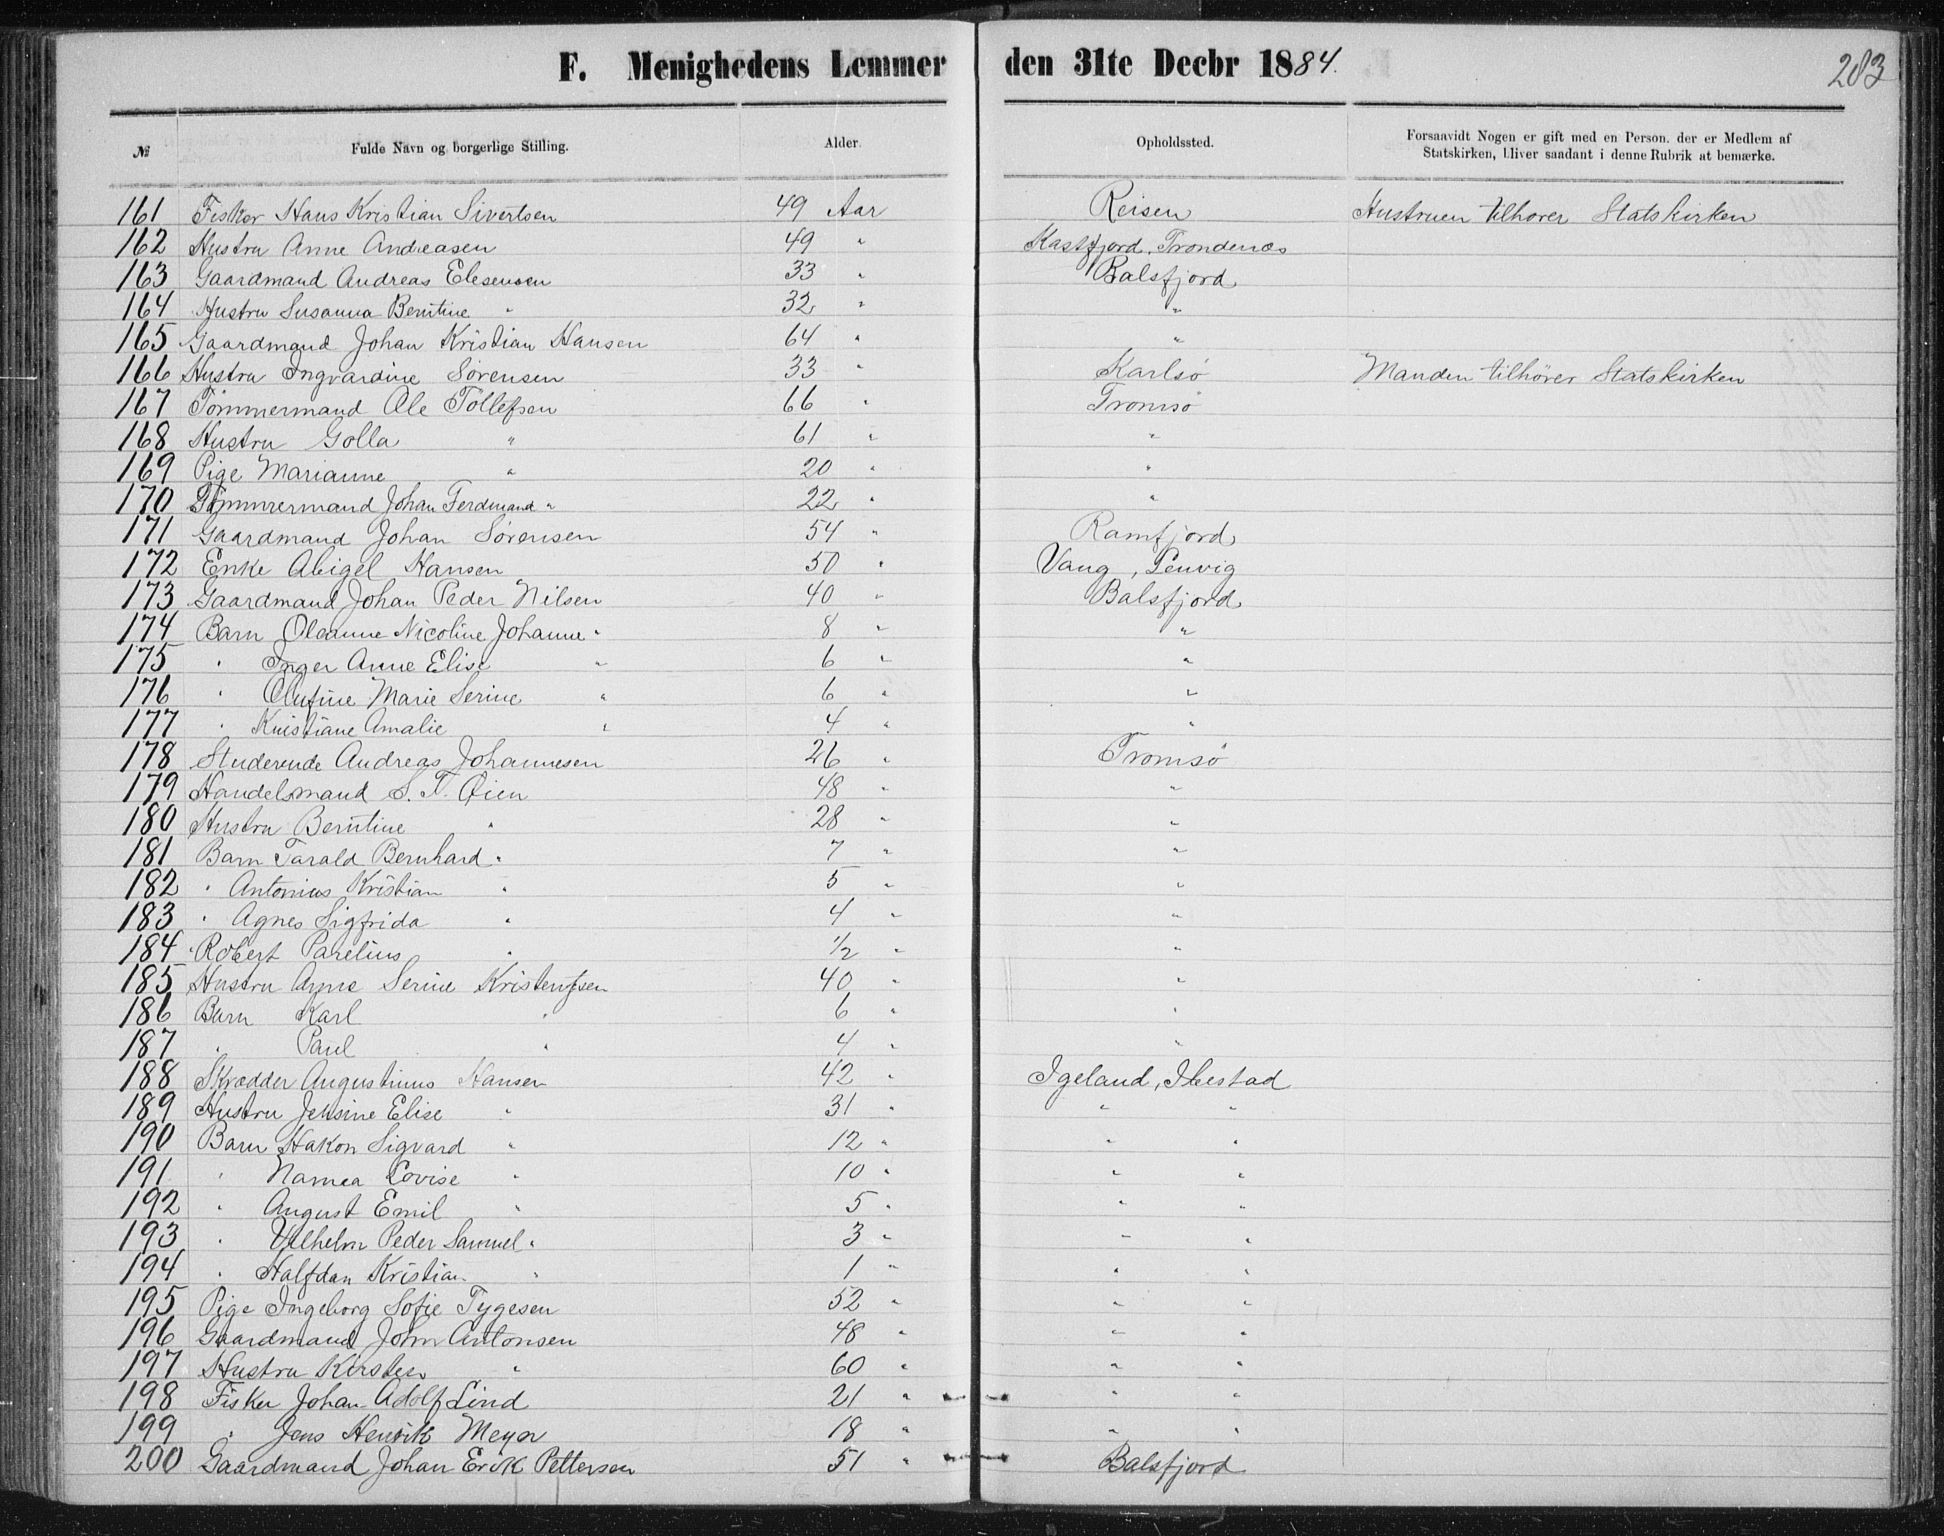 F. Menighedens Lemmer den 31te Decbr 1884. 283
№ Fulde Navn og borgerlige Stilling. Alder. Opholdssted. Forsaavidt Nogen er gift med en Person, der er Medlem af
Statskirken, bliver saadant i denne Rubrik at bemærke.
161 Fisker Hans Kristian Sivertsen 49 Aar Reisen Hustruen tilhører Statskirken
162 Hustru Anne Andreasen 49 " Kastfjord, Trondenæs
163 Gaardmand Andreas Elesensen 33 " Balsfjord
164 Hustru Susanna Berntine " 32 " "
165 Gaardmand Johan Kristian Hansen 64 " "
166 Hustru Ingvardine Sørensen 33 " Karlsø Manden tilhører Statskirken
167 Tømmermand Ole Tollefsen 66 " Tromsø
168 Hustru Golla " 61 " "
169 Pige Marianne " 20 " "
170 Tømmermand Johan Ferdinand " 22 " "
171 Gaardmand Johan Sørensen 54 " Ramfjord
172 Enke Abigel Hansen 50 " Vang, Lenvig
173 Gaardmand Johan Peder Nilsen 40 " Balsfjord
174 Barn Oleanne Nicoline Johanne " 8 " "
175 " Inger Anne Elise " 6 " "
176 " Olufine Marie Serine " 6 " "
177 " Kristiane Amalie " 4 " "
178 Studerende Andreas Johannesen 26 " Tromsø
179 Handelsmand S. T. Øien 48 " "
180 Hustru Berntine " 28 " "
181 Barn Tarald Bernhard " 7 " "
182 " Antonius Kristian " 5 " "
183 " Agnes Sigfrida " 4 " "
184 " Robert Parelius " 1/2 " "
185 Hustru Anne Serine Kristensen 40 " "
186 Barn Karl " 6 " "
187 " Paul " 4 " "
188 Skrædder Augustinus Hansen 42 " Igeland, Ibestad
189 Hustru Jensine Elise " 31 " " "
190 Barn Hakon Sigvard " 12 " " "
191 " Namea Lovise " 10 " " "
192 " August Emil " 5 " " "
193 " Vilhelm Peder Samuel " 3 " " "
194 " Halfdan Kristian " 1 " " "
195 Pige Ingeborg Sofie Tygesen 52 " " "
196 Gaardmand John Antonsen 48 " " "
197 Hustru Kirsten " 60 " " "
198 Fisker Johan Adolf Lind 21 " " "
199 " Jens Henrik Meyer 18 " " "
200 Gaardmand Johan Erik Pettersen 51 " Balsfjord